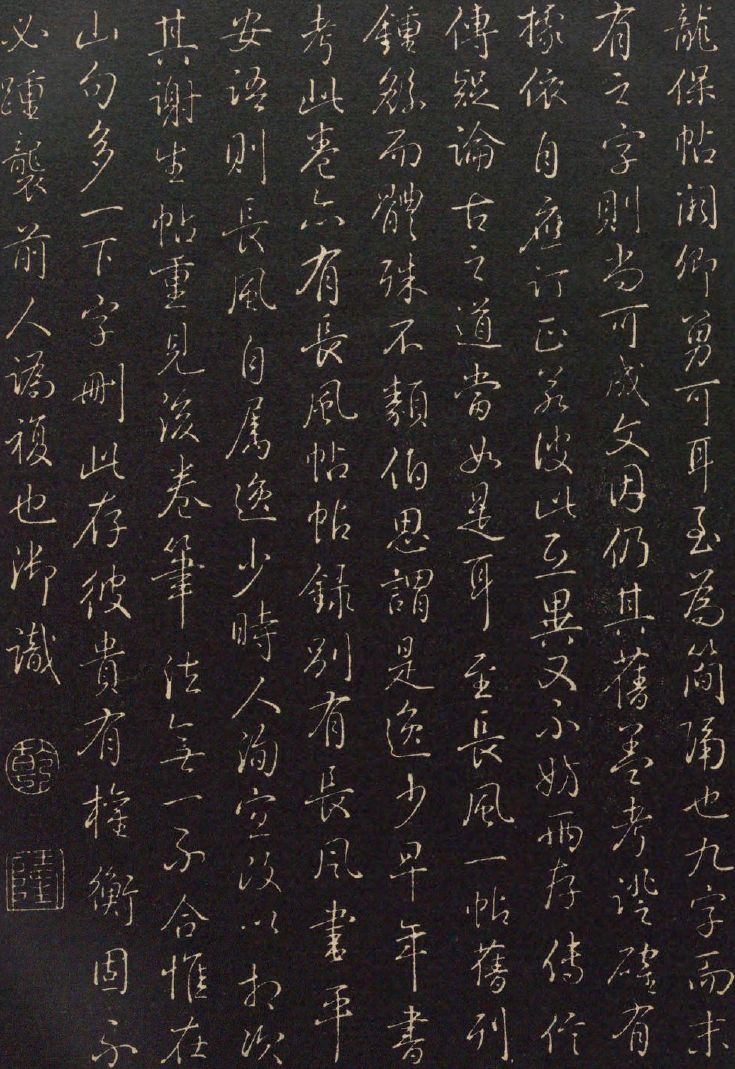 龍保帖闕卿勇可耳至為簡隔也九字而末
有之字則尚可成文因仍其舊蓋考證確有
據依自應訂正若彼此互異又不妨兩存傳信
傳疑論古之道當如是耳至長風一帖舊刊
鍾繇而體殊不類伯思謂是逸少早年書
考此卷亦有長風帖帖錄別有長風書平
安語則長風自屬逸少時人淘宜改以相次
其謝生帖重見後卷筆法無一不合惟在
山句多一下字刪此存彼貴有權衡固不
必踵襲前人譌複也御識
乾
隆